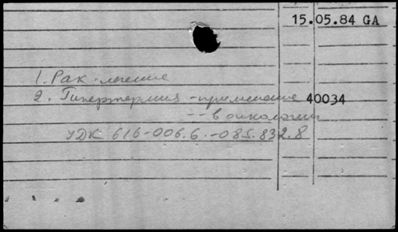 15.05.84 GA
1. Рак - лечение
2. Гипертермия - применение 40034
-- в онкологии
УДК 616-006.6.-085.832.8